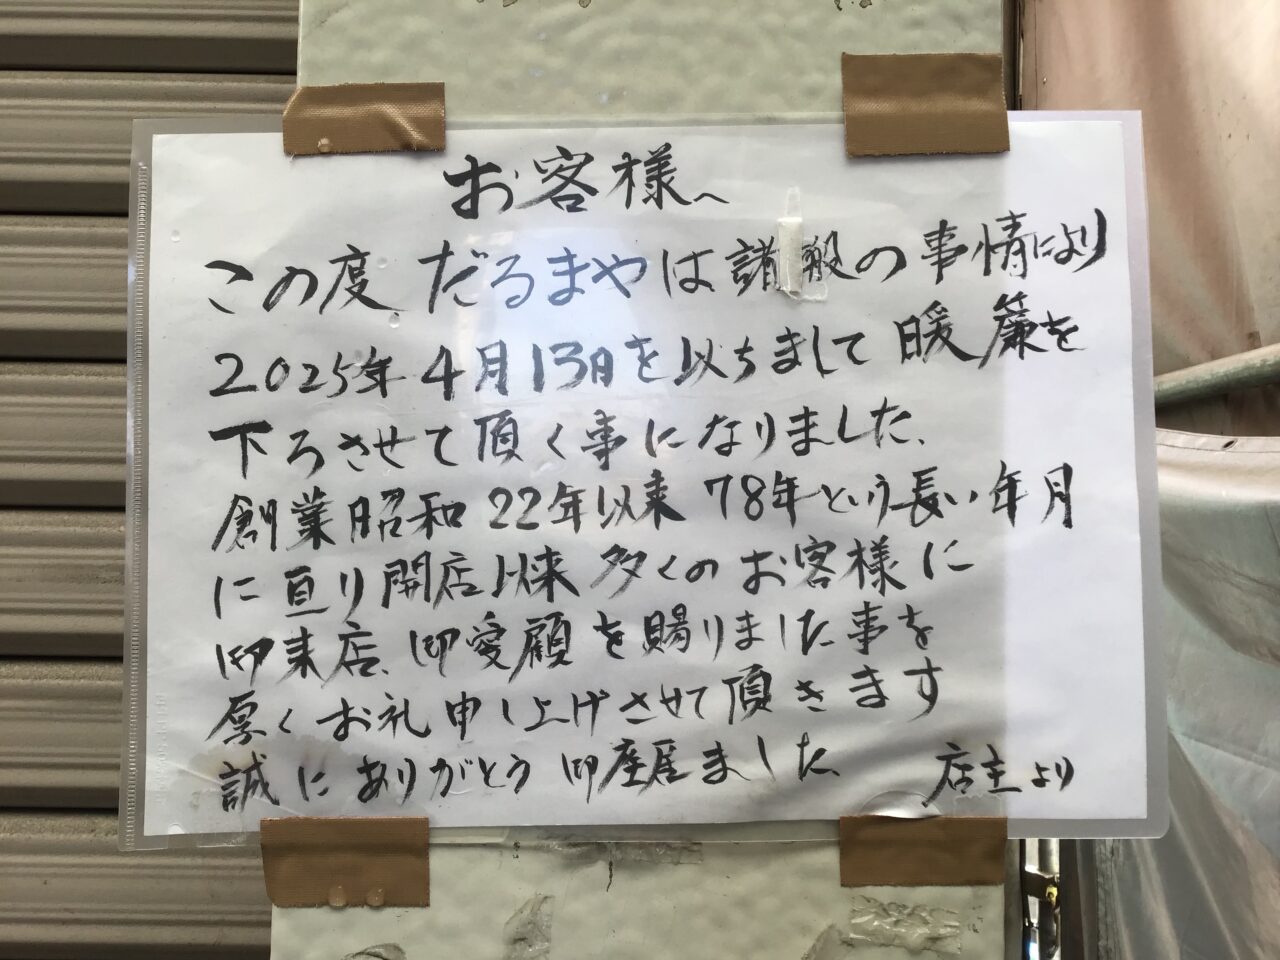 お客様へ
この度、だるまやは諸般の事情により
2025年4月13日を以ちまして暖簾を
下ろさせて頂く事になりました、
創業昭和22年以来78年という長い年月
に亘り開店以来多くのお客様に
御来店、御愛顧を賜りました事を
厚くお礼申し上げさせて頂きます
誠にありがとう御座居ました、
店主より